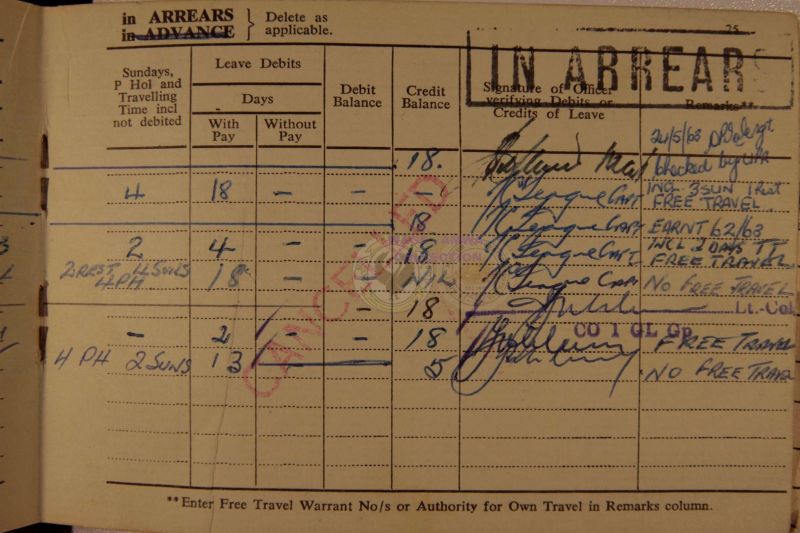 in ARREARS
in ADVANCE
} Delete as
applicable.
25
IN ARREARS
Sundays,
P Hol and
Travelling
Time incl
not debited
Leave Debits
Days
With
Pay
Without
Pay
Debit
Balance
Credit
Balance
Signature of Officer
verifying Debits or
Credits of Leave
Remarks**
24/5/63
18. checked by
4 18 – – – Capt INCL 3 SUN 1 Rest
FREE TRAVEL
18 Capt EARNT 62/63
2 4 – – 18 Capt INCL 2 DAYS TT
FREE TRAVEL
2 REST 4 SUNS
4 PH 18 – – NIL Capt NO FREE TRAVEL
– 18 Lt.-Col.
CO 1 GL Gp
– 2 – 18 FREE TRAVEL
4 PH 2 SUNS 13 5 NO FREE TRAVEL
CANCELLED
**Enter Free Travel Warrant No/s or Authority for Own Travel in Remarks column.